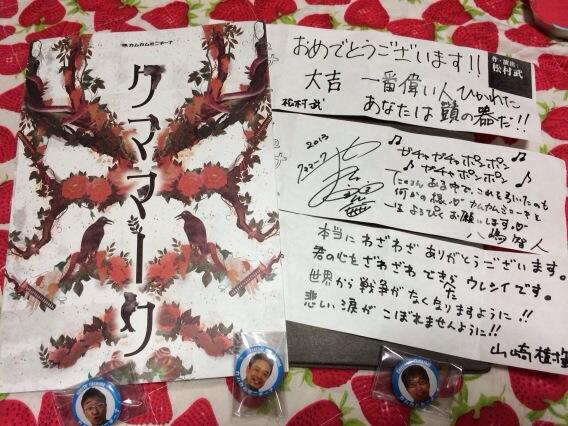 カムカムミニキーナ
クママーク
おめでとうございます!!
作・演出:
松村武
大吉 一番偉い人ひかれた
松村武
あなたは の器だ!!
2013
クママーク
ガチャガチャポンポン
ガチャガチャポンポン
たくさんある中で、これを引いたのも
何かの縁♡ カムカムミニキーナと
よろぴくお願いします♡
八嶋智人
本当に わざわざ ありがとうございます。
君の心を ざわざわ できたら ウレシイです。
世界から 戦争が なくなりますように!!
悲しい涙が こぼれませんように!!
山崎樹範